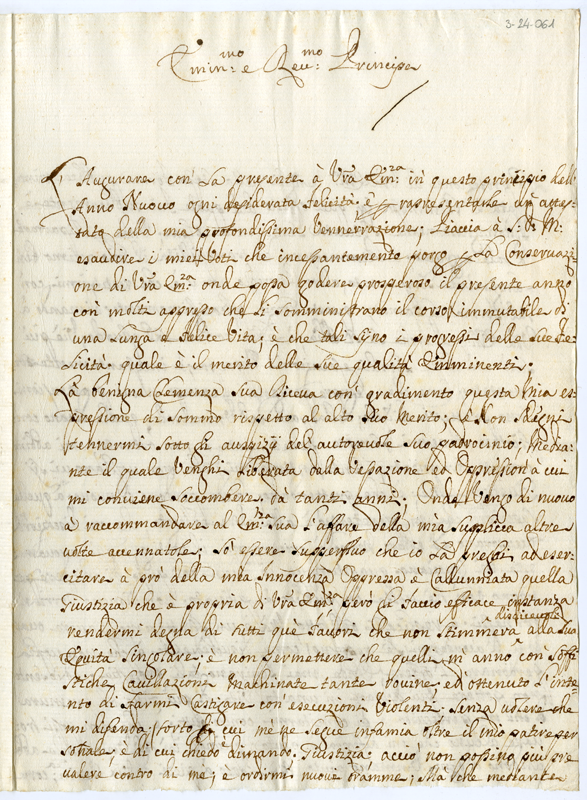 3-24-061
Emin:mo e Rev:mo Principe
Augurare con la presente à Vra Em:za in questo principio dell
Anno Nuovo ogni desiderata felicità è rapresentarle un attes-
tato della mia profondissima Vennerrazione; Piaccia à S: D: M:
esaudire i miei Voti che incessantemente porgo p la Conservazi-
one di Vra Em:za onde possa godere prosperoso il presente anno
con molti appreso che li somministrano il corso immutabile di
una lunga e felice Vita; è che tali sijno i progressi delle sue fe-
licità quale è il merito delle sue qualità Emminenti;
La benigna Clemenza Sua Riceva con gradimento questa mia es-
pressione di sommo rispetto al alto suo Merito; è Non sdegni
tennermi sotto gli auspizij del autorevole suo padrocinio; Media-
nte il quale Venghi liberata dalla Vessazione ed Oppression à cui
mi conviene soccombere dà tanti anni; Onde Vengo di nuovo
à raccommandare al Em:za Sua l'affare della mia supplicca altre
volte accennatole; sò essere supperfluo che io La preghi ad eser-
citare à prò della mia Innocenza Oppressa è Callunniata quella
Giustizia che è propria di Vra Em:za però Gli faccio efficace instanza
rendermi degna di tutti què favori che non stimmerà disdicevoli alla Sua
Equità singolare; è non permettere che quelli m'anno con soffi-
stiche Cavillazioni machinate tante rovine, ed ottenuto l'inte
nto di farmi castigare con esecuzioni Violenti senza volere che
mi difenda; torto p cui me ne segue infamia oltre il mio patire per
sonale; è di cui chiedo dimando Giustizia; acciò non possino più pre
valere contro di me; è ordirmi nuove tramme; Mà che mediante